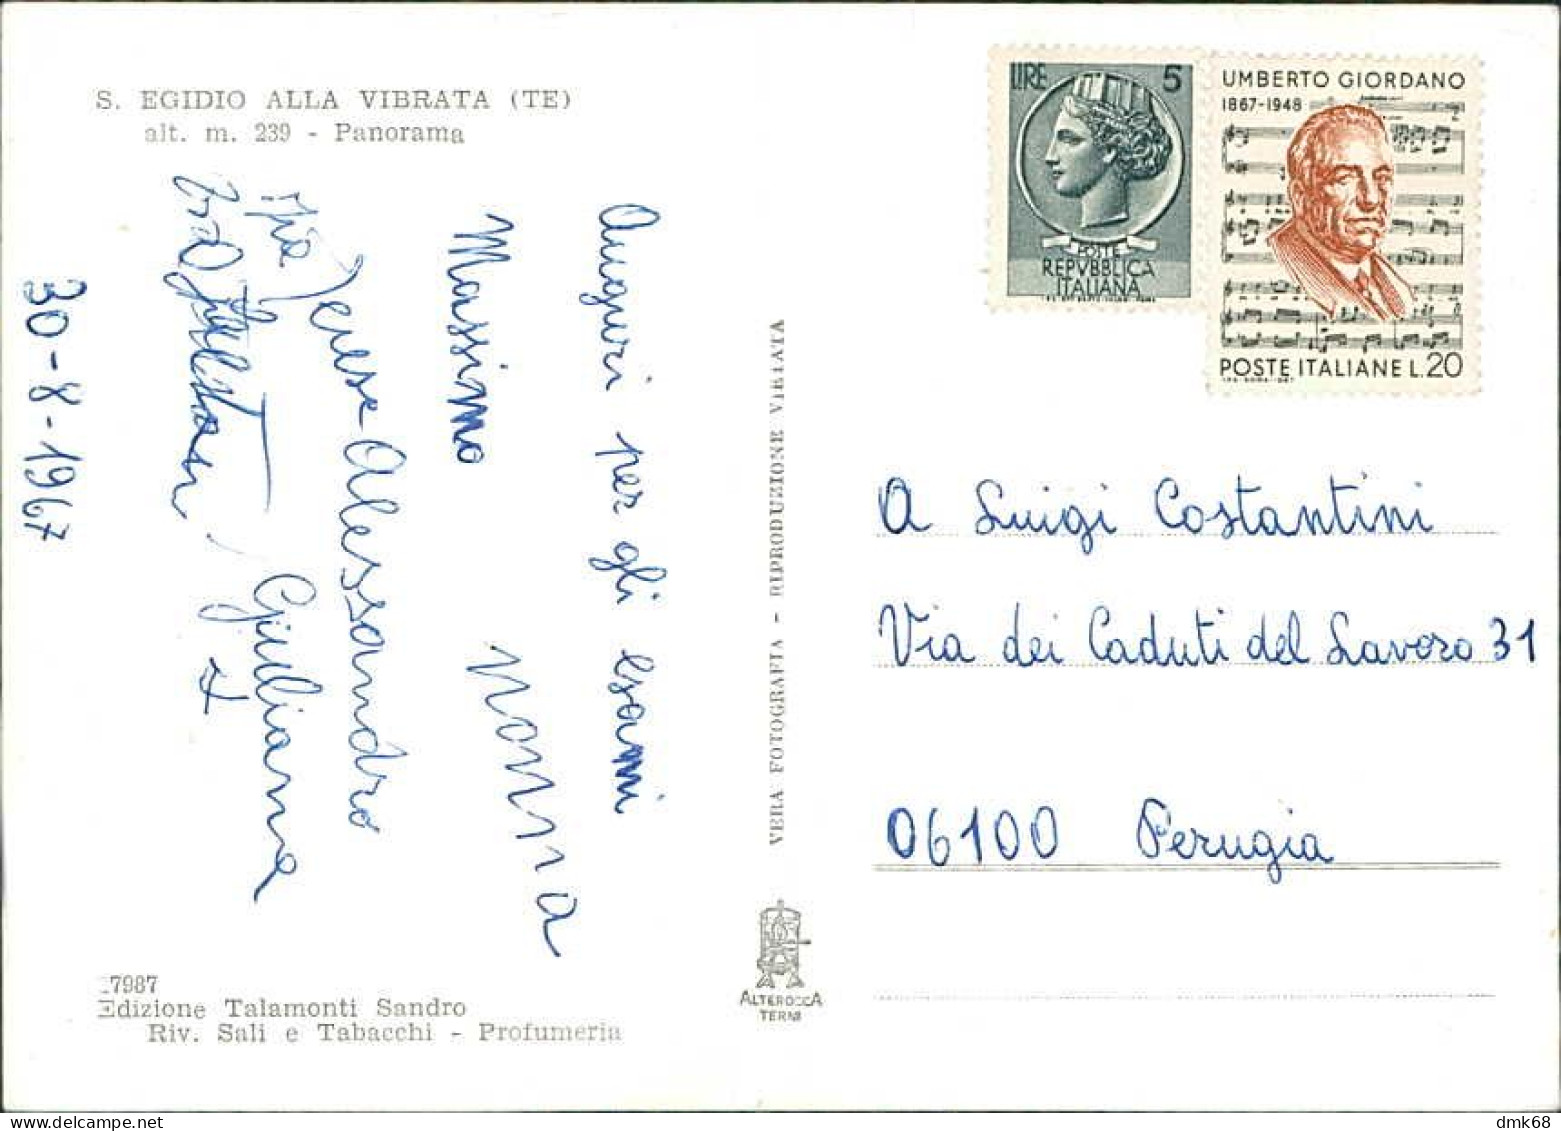 S. EGIDIO ALLA VIBRATA (TE)
alt. m. 239 - Panorama
Auguri per gli esami
Massimo
nonna
Alessandro
Giuliana
30-8-1967
7987
Edizione Talamonti Sandro
Riv. Sali e Tabacchi - Profumeria
VERA FOTOGRAFIA - RIPRODUZIONE VIETATA
ALTEROCCA
TERNI
LIRE 5
POSTE
REPVBBLICA
ITALIANA
UMBERTO GIORDANO
1867-1948
POSTE ITALIANE L.20
A Luigi Costantini
Via dei Caduti del Lavoro 31
06100 Perugia
dmk68